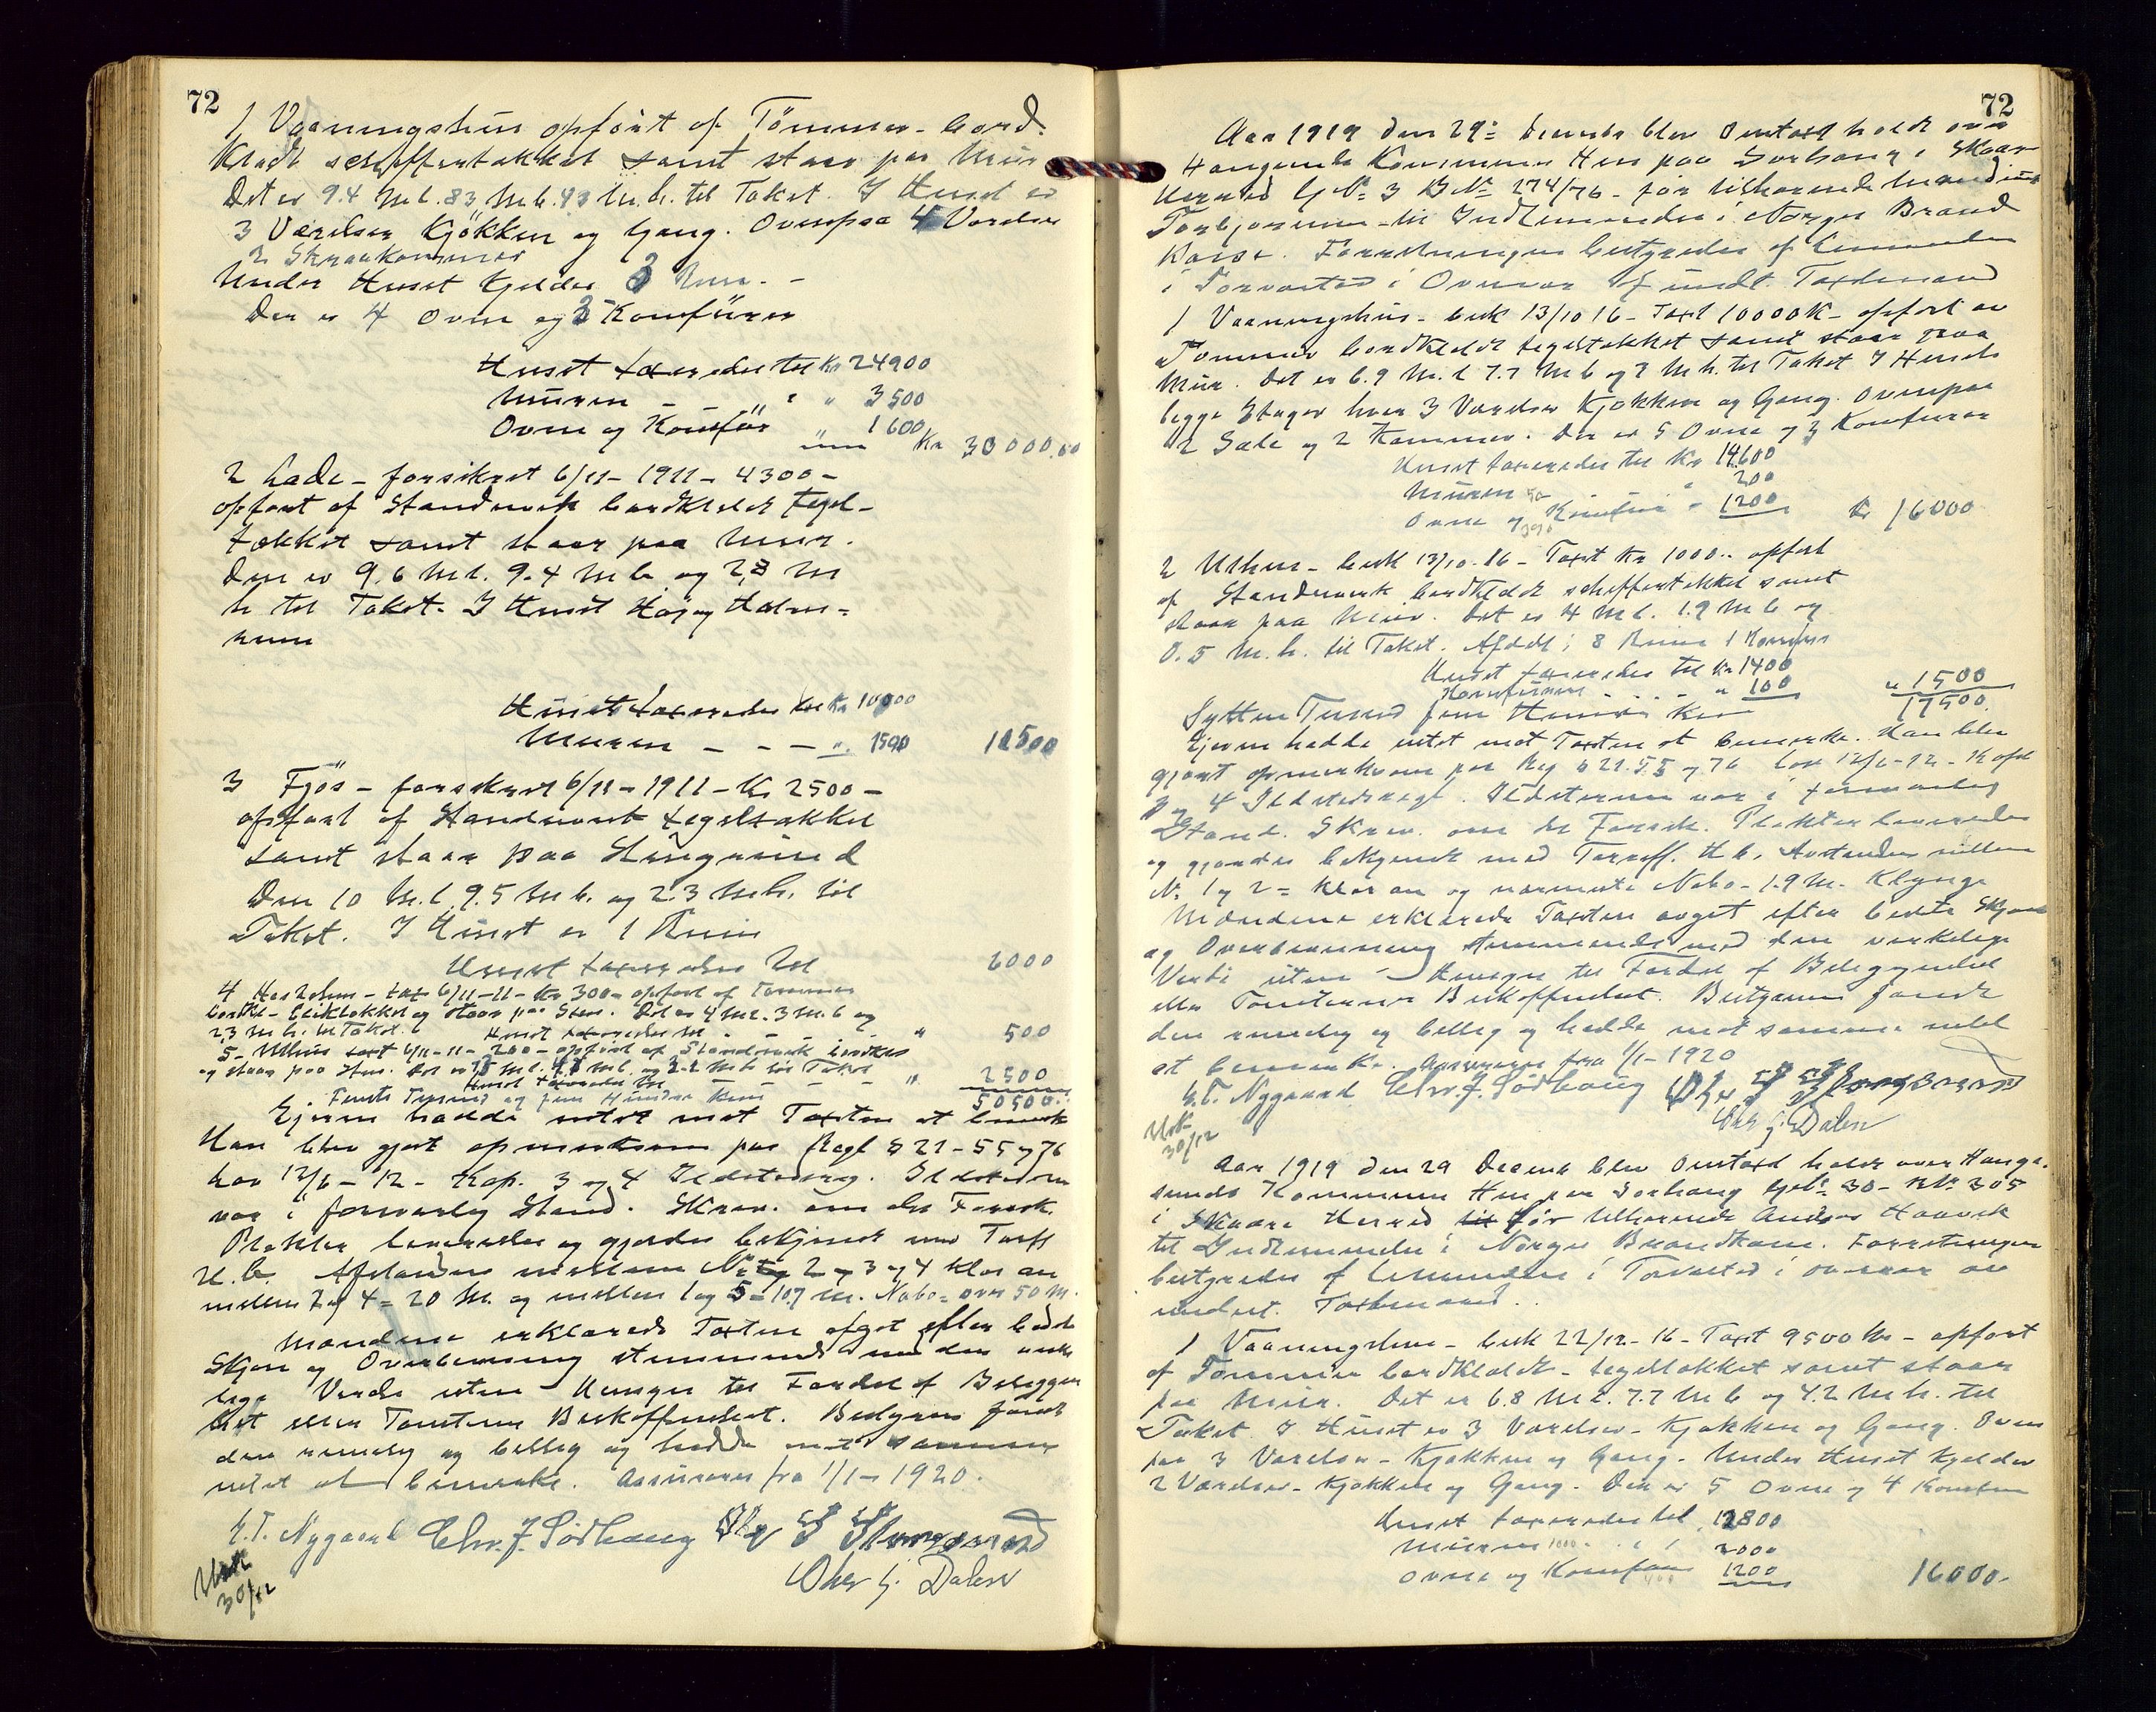 72
1 Vaaningshus opført af Tømmer- bord-
klædt schiffertækket samt staar paa Mur
Det er 9.4 M l. 8.3 M b. 4.3 M. h. til Taket. I Huset er
3 Værelser Kjøkken og Gang. Ovenpaa 4 Værelser
2 Skraakammer
Under Huset Kjelder 3 Rum. -
Der er 4 Ovne og 3 Komfürer
Huset taxeredes til Kr 24900
Muren - " " 3500
Ovne og Komfür " 1600
Kr 30000.00
2 Lade - forsikret 6/11 - 1911 - 4300 -
opført af Standverk bordklædt tegl-
tækket samt staar paa Mur.
Den er 9.6 M l. 9.4 M b og 2,8 M
h til Taket. I Huset Høy og Halm-
rum
Huset taxeredes til Kr 10000
Muren - - - " 1500 11500
3 Fjös - forsikret 6/11 - 1911 - Kr 2500 -
opført af Standverk tegltækket
samt staar paa Stengrund
Den 10 M. l. 9.5 M b. og 2.3 M h. til
Taket. I Huset er 1 Rum
Huset taxeredes til 6000
4 - tax 6/11-11 - Kr 300 - opført af Tømmer
bordkl - tækket og staar paa Sten. Det er 4 M l. 3 M. b og
2.3 M h. til Taket. Huset taxeredes til - - - " 500
5 - Uthus taxt 6/11-11 - 200 - opført af Standverk bordkl
og staar paa Sten. Det er M l. M b. og 2.2 M h til Taket
Huset taxeredes til - - - " 2500
Femti Tusend og fem Hundre Kroner 50500.-
Ejeren hadde intet mot Taxten at bemerke
Han blev gjort opmerksom paa Regl § 21 - 55 og 76
Lov 12/6 - 12 - Kap. 3 og 4 Ildstedsreg. Ildstederne
var i forsvarlig Stand. Skrev. om det Forsik.
Plakter leveredes og gjordes bekjendt med Tariff
H. b. Afstanden mellem No 2 og 3 og 4 klos an
mellem 2 og 4 = 20 M. og mellem 1 og 5 = 10.7 M. Nabo = over 50 M.
Mændene erklærede Taxten afgit efter bedste
Skjøn og Overbevisning stemmende med den virke
lige Verdi uten Hensyn til Fordel af Beliggen
het eller Tomtens Beskaffenhet. Bestyreren fandt
den rimelig og billig og hadde mot samme
intet at bemerke. Assureres fra 1/1 - 1920.
G. T. Nygaard Chr. J. Sørhaug
Olav G. Dalen
Utsk
30/12
72
Aar 1919 den 29de December blev Omtaxt holdt over
Haugesunds Kommunes Hus paa Sørhaug i Skaare
Herred G No 3 B No 274/76 - før tilhørende
Torbjørnsen til Indlemmelse i Norges Brand
Kasse. Forretningen bestyredes af Lensmanden
i Torvastad i Overvær af undt. Taxtmænd
1 Vaaningshus - besk 13/10 16 - Taxt 10000 K - opført av
Tømmer bordklædt tegltækket samt staar paa
Mur. Det er 6.9 M. l 7.7 M b og 7 M h. til Taket I Husets
begge Etager hver 3 Værelser Kjøkken og Gang. Ovenpaa
2 Sale og 2 Kammer. Der er 5 Ovne og 3 Komfurer
Huset taxeredes til Kr 14600
Muren " 200
Ovne og Komfur " 1200 Kr 16000
2 Uthus - besk 13/10-16 - Taxt Kr 1000.- opført
af Standverk bordklædt schiffertækket samt
staar paa Mur. Det er 4 M l. 1.9 M b og
0.5 M. h. til Taket. Afdelt i 8 Rum 1 Komfur
Huset taxeredes til Kr 1400
Komfuren - - - - " 100 " 1500
Sytten Tusend fem Hundre Kr 17500.
Ejeren hadde intet mot Taxten at bemerke. Han blev
gjort opmerksom paa Reg § 21. 55 og 76 Lov 12/6-12 - Kap
3 og 4 Ildstedsregl. Ildstederne var i forsvarlig
Stand. Skrev. om det Forsik. Plakter leveredes
og gjordes bekjendt med Tariff. H. b. Avstanden mellem
No 1 og 2 = klos an og nærmeste Nabo - 1.9 M. Klynge
Mændene erklærede Taxten avgit efter bedste Skjøn
og Overbevisning stemmende med den virkelige
Verdi uten Hensyn til Fordel af Beliggenhet
eller Tomtens Beskaffenhet. Bestyreren fandt
den rimelig og billig og hadde mot samme intet
at bemerke. Assureres fra 1/1 - 1920
G. T. Nygaard Chr. J. Sørhaug
Olav G. Dalen
Utsk
30/12
Aar 1919 den 29 Decemb blev Omtaxt holdt over Hauge-
sunds Kommunes Hus paa Sørhaug G No 30 - B No 305
i Skaare Herred før tilhørende Anders Haavik
til Indlemmelse i Norges Brandkasse. Forretningen
bestyredes af Lensmanden i Torvastad i Overvær av
undert. Taxtmænd.
1 Vaaningshus - besk 22/12 - 16 - Taxt 9500 Kr - opført
af Tømmer bordklædt - tegltækket samt staar
paa Mur. Det er 6.8 M l. 7.7 M b og 4.2 M h. til
Taket I Huset er 3 Værelser - Kjøkken og Gang. Oven
paa 3 Værelser - Kjøkken og Gang. Under Huset Kjelder
2 Værelser - Kjøkken og Gang. Der er 5 Ovne og 4 Komfur
Huset taxeredes til 12800
Muren 2000
Ovne og Komfur 1200 16000.-